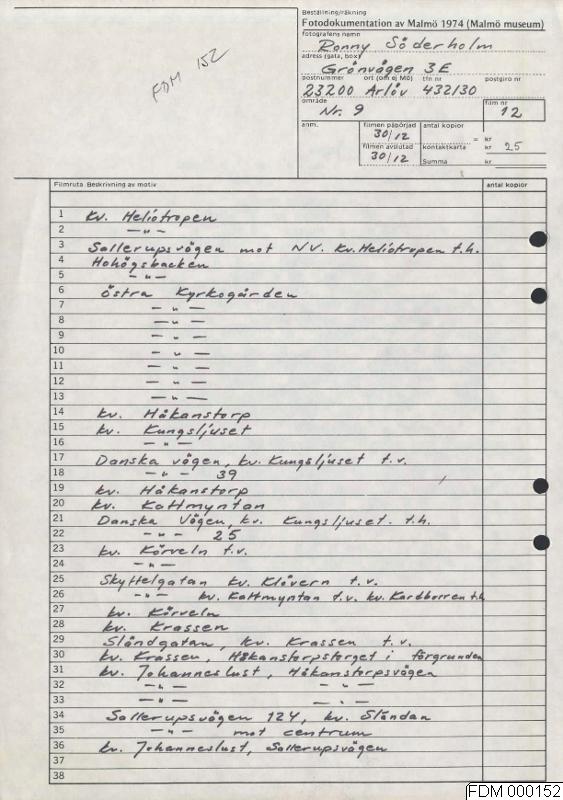 Beställning/räkning
Fotodokumentation av Malmö 1974 (Malmö museum)
fotografens namn
Ronny Söderholm
adress (gata, box)
Grönvägen 3E
postnummer ort (om ej Mö) tfn nr postgiro nr
23200 Arlöv 432130
område film nr
Nr. 9 12
anm. filmen påbörjad antal kopior
30/12 = kr
filmen avslutad kontaktkarta kr 25
30/12 Summa kr
FDM 152
Filmruta Beskrivning av motiv antal kopior
1 Kv. Heliotropen
2 — " —
3 Sallerupsvägen mot NV. Kv. Heliotropen t.h.
4 Hohögsbacken
5 — " —
6 Östra Kyrkogården
7 — " —
8 — " —
9 — " —
10 — " —
11 — " —
12 — " —
13 — " —
14 kv. Håkanstorp
15 kv. Kungsljuset
16 — " —
17 Danska vägen, kv. Kungsljuset t.v.
18 — " — 39
19 kv. Håkanstorp
20 kv. Kattmyntan
21 Danska Vägen, kv. Kungsljuset. t.h.
22 — " — 25
23 kv. Körveln t.v.
24 — " —
25 Skyttelgatan kv. Klövern t.v.
26 — " — kv. Kattmyntan t.v. kv. Kardborren t.h.
27 kv. Körveln
28 kv. Krassen
29 Sländgatan, kv. Krassen t.v.
30 kv. Krassen, Håkanstorpstorget i förgrunden
31 kv. Johanneslust, Håkanstorpsvägen
32 — " — — " —
33 — " — — " —
34 Sallerupsvägen 124, kv. Sländan
35 — " — mot centrum
36 kv. Johanneslust, Sallerupsvägen
37
38
FDM 000152